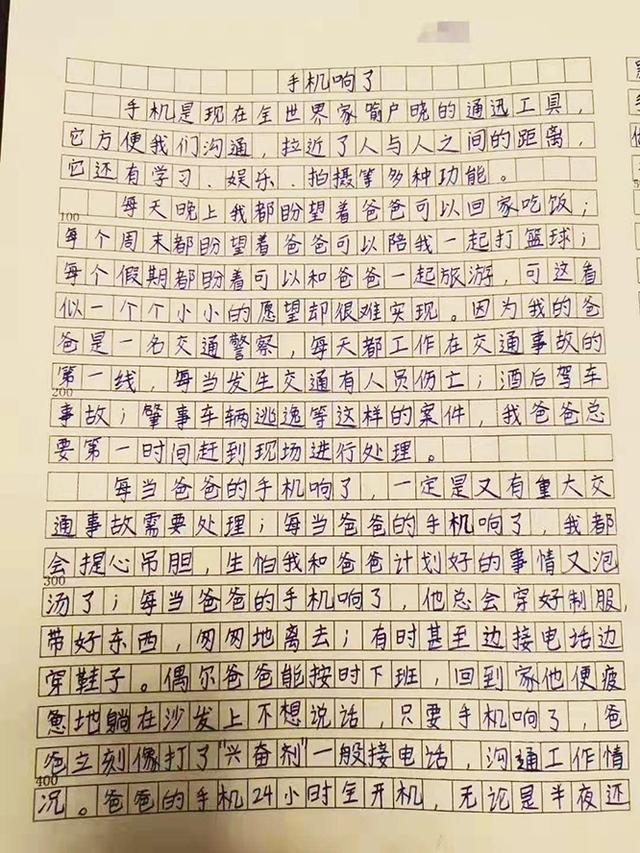 手机响了
手机是现在全世界家喻户晓的通迅工具，
它方便我们沟通，拉近了人与人之间的距离，
它还有学习、娱乐、拍摄等多种功能。
每天晚上我都盼望着爸爸可以回家吃饭；
100
每个周末都盼望着爸爸可以陪我一起打篮球；
每个假期都盼着可以和爸爸一起旅游，可这看
似一个个小小的愿望却很难实现。因为我的爸
爸是一名交通警察，每天都工作在交通事故的
第一线，每当发生交通有人员伤亡；酒后驾车
200
事故；肇事车辆逃逸等这样的案件，我爸爸总
要第一时间赶到现场进行处理。
每当爸爸的手机响了，一定是又有重大交
通事故需要处理；每当爸爸的手机响了，我都
会提心吊胆，生怕我和爸爸计划好的事情又泡
300
汤了；每当爸爸的手机响了，他总会穿好制服，
带好东西，匆匆地离去；有时甚至边接电话边
穿鞋子。偶尔爸爸能按时下班，回到家他便疲
惫地躺在沙发上不想说话，只要手机响了，爸
爸立刻像打了"兴奋剂"一般接电话，沟通工作情
400
况。爸爸的手机24小时全开机，无论是半夜还